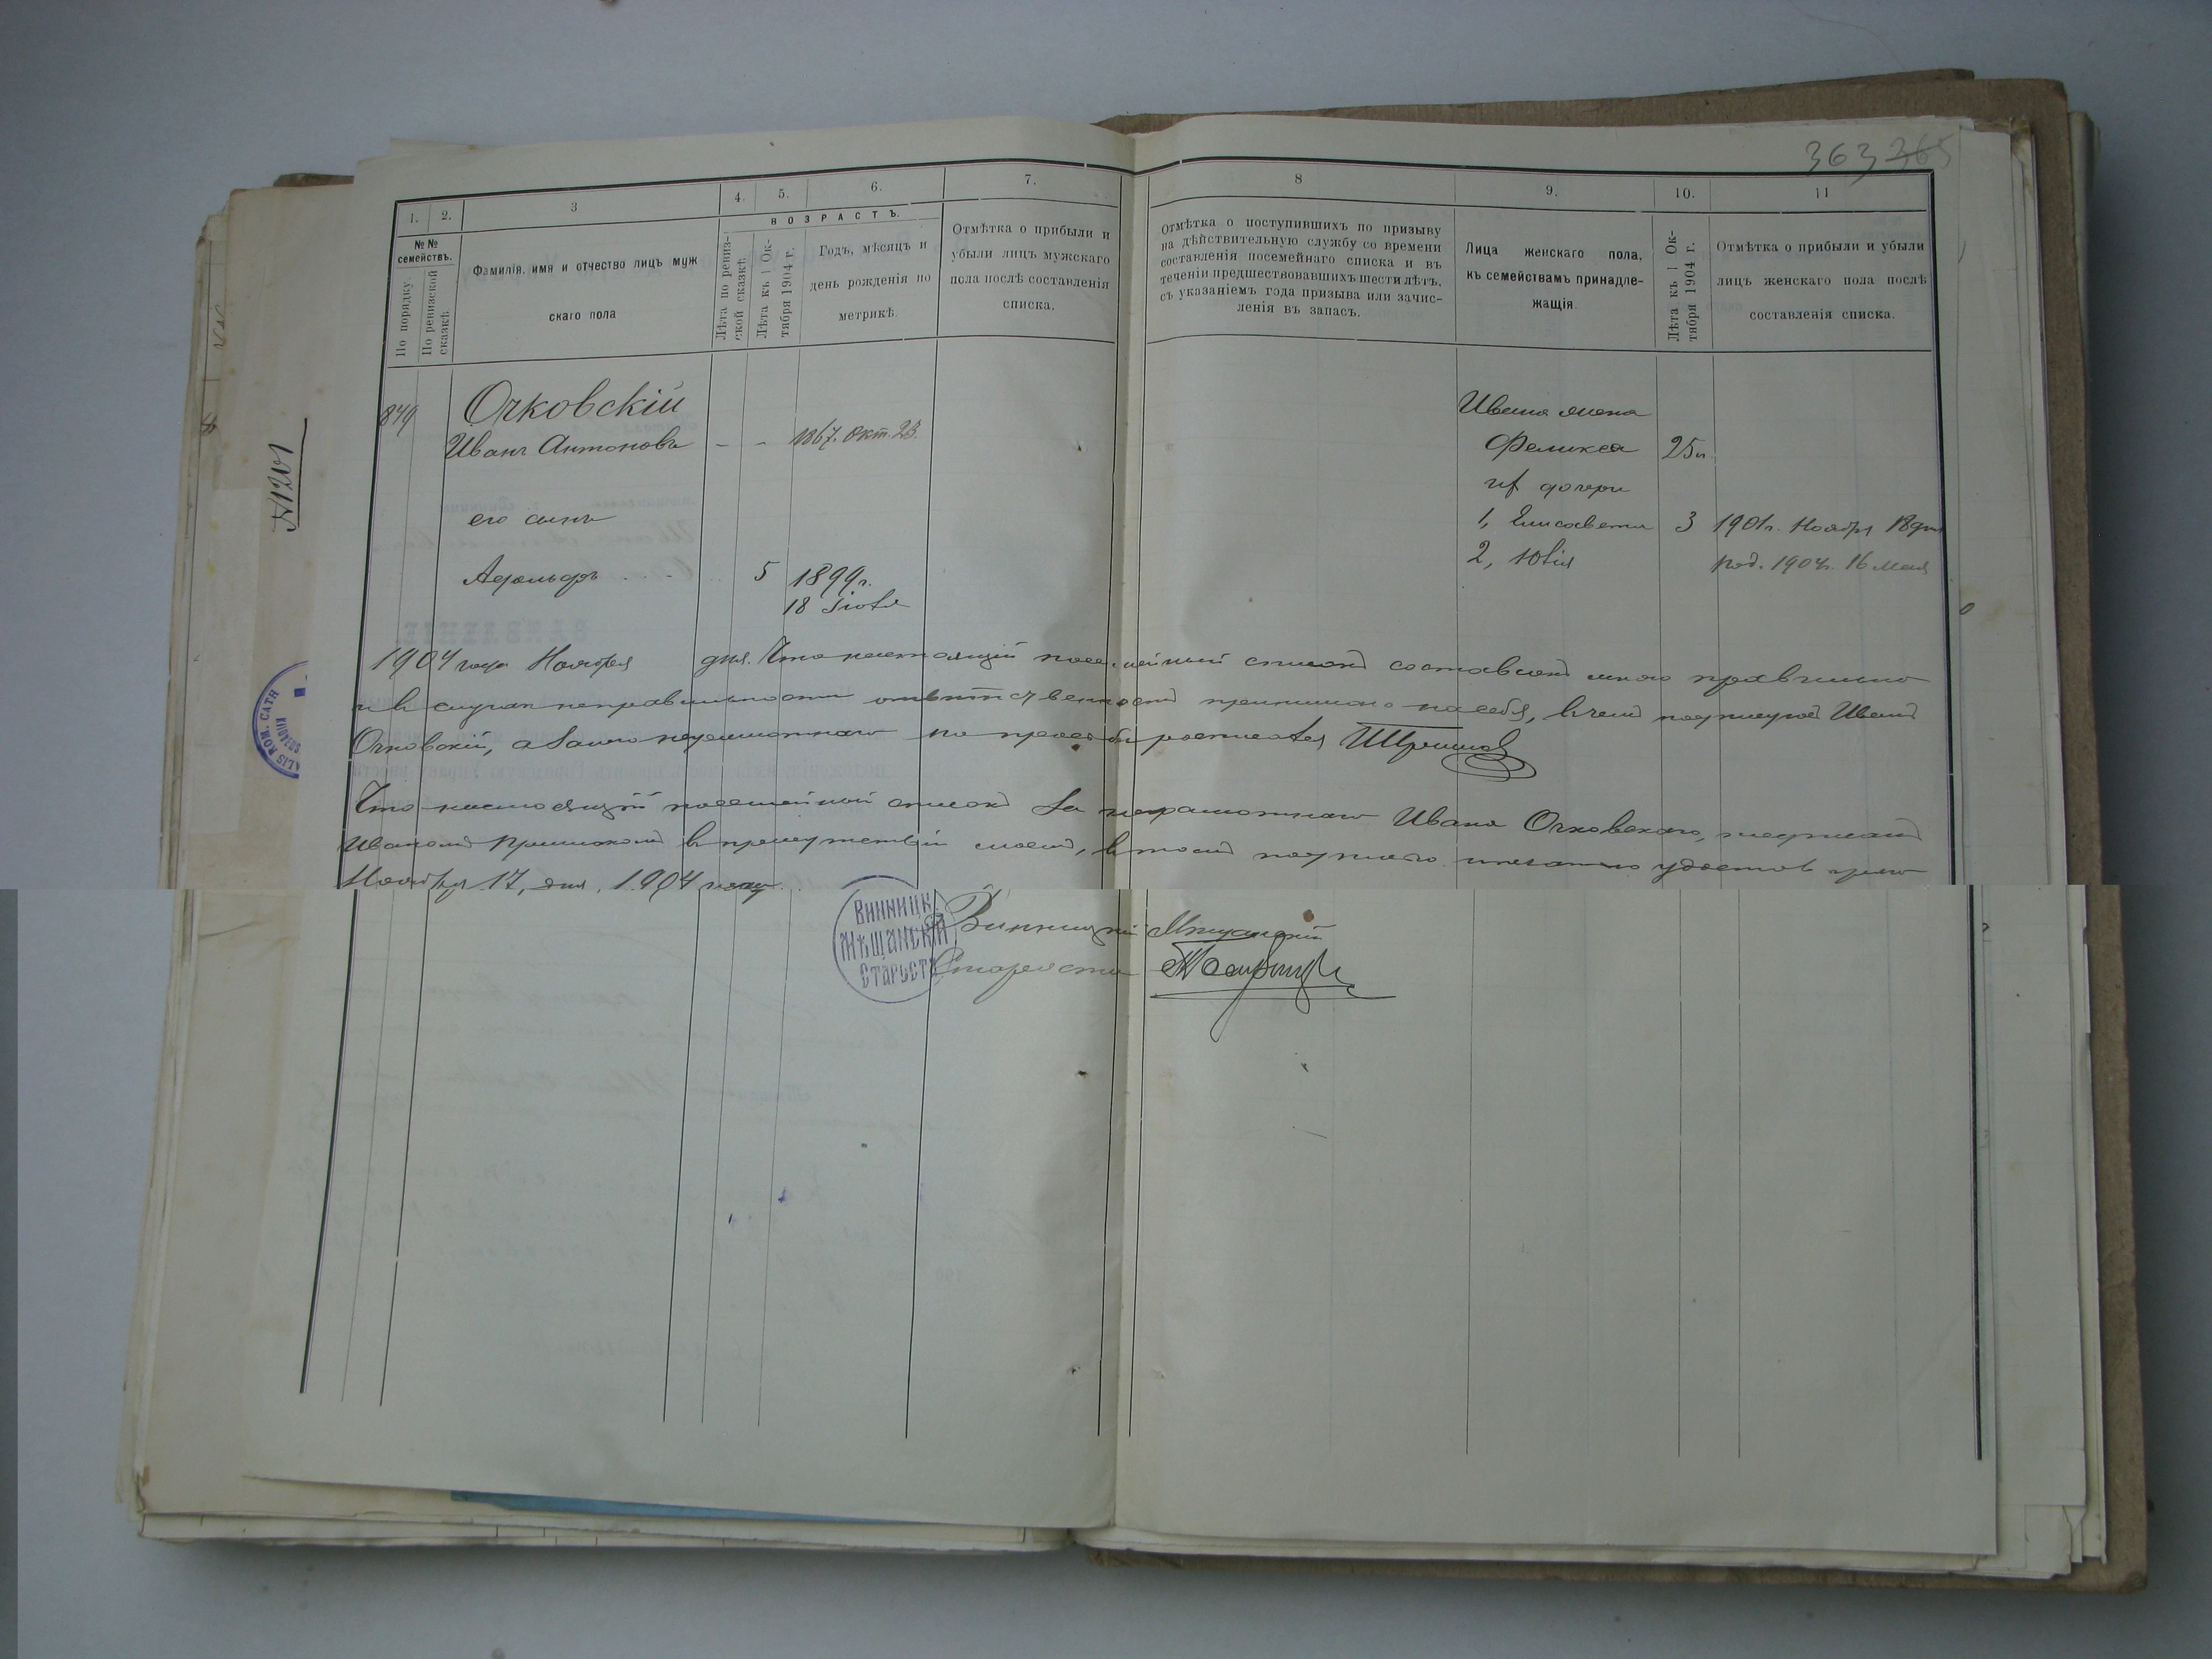 363 365
1.
2.
3
4.
5.
6.
7.
8
9.
10.
11
№ №
семействъ.
По порядку
По ревизской
сказкѣ.
Фамилія, имя и отчество лицъ муж
скаго пола
ВОЗРАСТЪ.
Лѣта по ревиз-
ской сказкѣ.
Лѣта къ 1 Ок-
тября 1904 г.
Годъ, мѣсяцъ и
день рожденія по
метрикѣ.
Отмѣтка о прибыли и
убыли лицъ мужскаго
пола послѣ составленія
списка.
Отмѣтка о поступившихъ по призыву
на дѣйствительную службу со времени
составленія посемейнаго списка и въ
теченіи предшествовавшихъ шести лѣтъ,
съ указаніемъ года призыва или зачис-
ленія въ запасъ.
Лица женскаго пола,
къ семействамъ принадле-
жащія.
Лѣта къ 1 Ок-
тября 1904 г.
Отмѣтка о прибыли и убыли
лицъ женскаго пола послѣ
составленія списка.
849
Очковскій
Иванъ Антоновъ - - 1867. Окт. 23.
его сынъ
Адольфъ 5 1899г.
18 Іюля
Ивана жена
Феликса 25
их дочери
1, Елисавета 3 1901г. Ноября 18 дня
2, Юлія род. 1904г. 16 мая
1904 года Ноября дня. Что настоящій посемейный списокъ составленъ мною правильно
и въ случаѣ неправильности отвѣтственность принимаю на себя, въ чемъ подписуюсь Иванъ
Очковскій, а за него неграмотнаго по просьбѣ росписался
Что настоящій посемейный списокъ за неграмотнаго Ивана Очковскаго, подписанъ
Иваномъ въ присутствіи моемъ, въ томъ подписью и печатью удостовѣряю
Ноября 17, дня, 1904 года.
Винницкій Мѣщанскій
Староста
ВИННИЦК.
МѢЩАНСКІЙ
СТАРОСТА
№1201
ROM. CATH